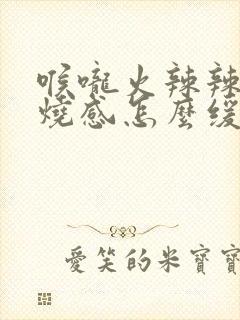 喉嚨火辣辣
燒感怎麼緩
愛笑的米寶寶